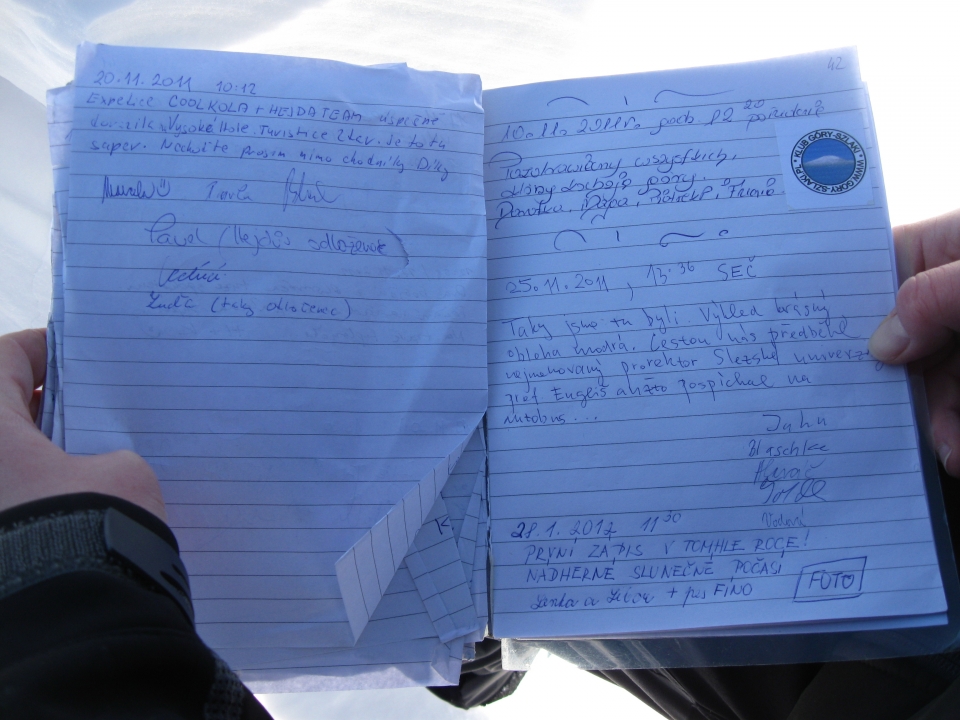 20.11.2011 10:12
Expedice COOLKOLA + HEJDATEAM úspěšně
dorazila Vysoké Hole. Turistice zdar. Je to tu
super. Nechoďte prosím mimo chodníky. Díky
Pavel (Nejdřív odloženec)
Luďa (taky odloženec)
42
10.11.2011r. godz. 12 20 południe
Pozdrawiamy wszystkich,
którzy kochają góry.
Dorotka,
KLUB GÓRY-SZLAKI
WWW.GORY-SZLAKI.PL
25.11.2011, 13.36 SEČ
Taky jsme tu byli Výhled krásný
obloha modrá. Cestou nás předběhl
nejmenovaný prorektor Slezské univerzity
prof Engliš anžto pospíchal na
autobus...
Jahn
Blaschke
28.1.2012 11 30
PRVNÍ ZÁPIS V TOMHLE ROCE!
NÁDHERNÉ SLUNEČNÉ POČASÍ
Lenka a Libor + pes FINO
FOTO